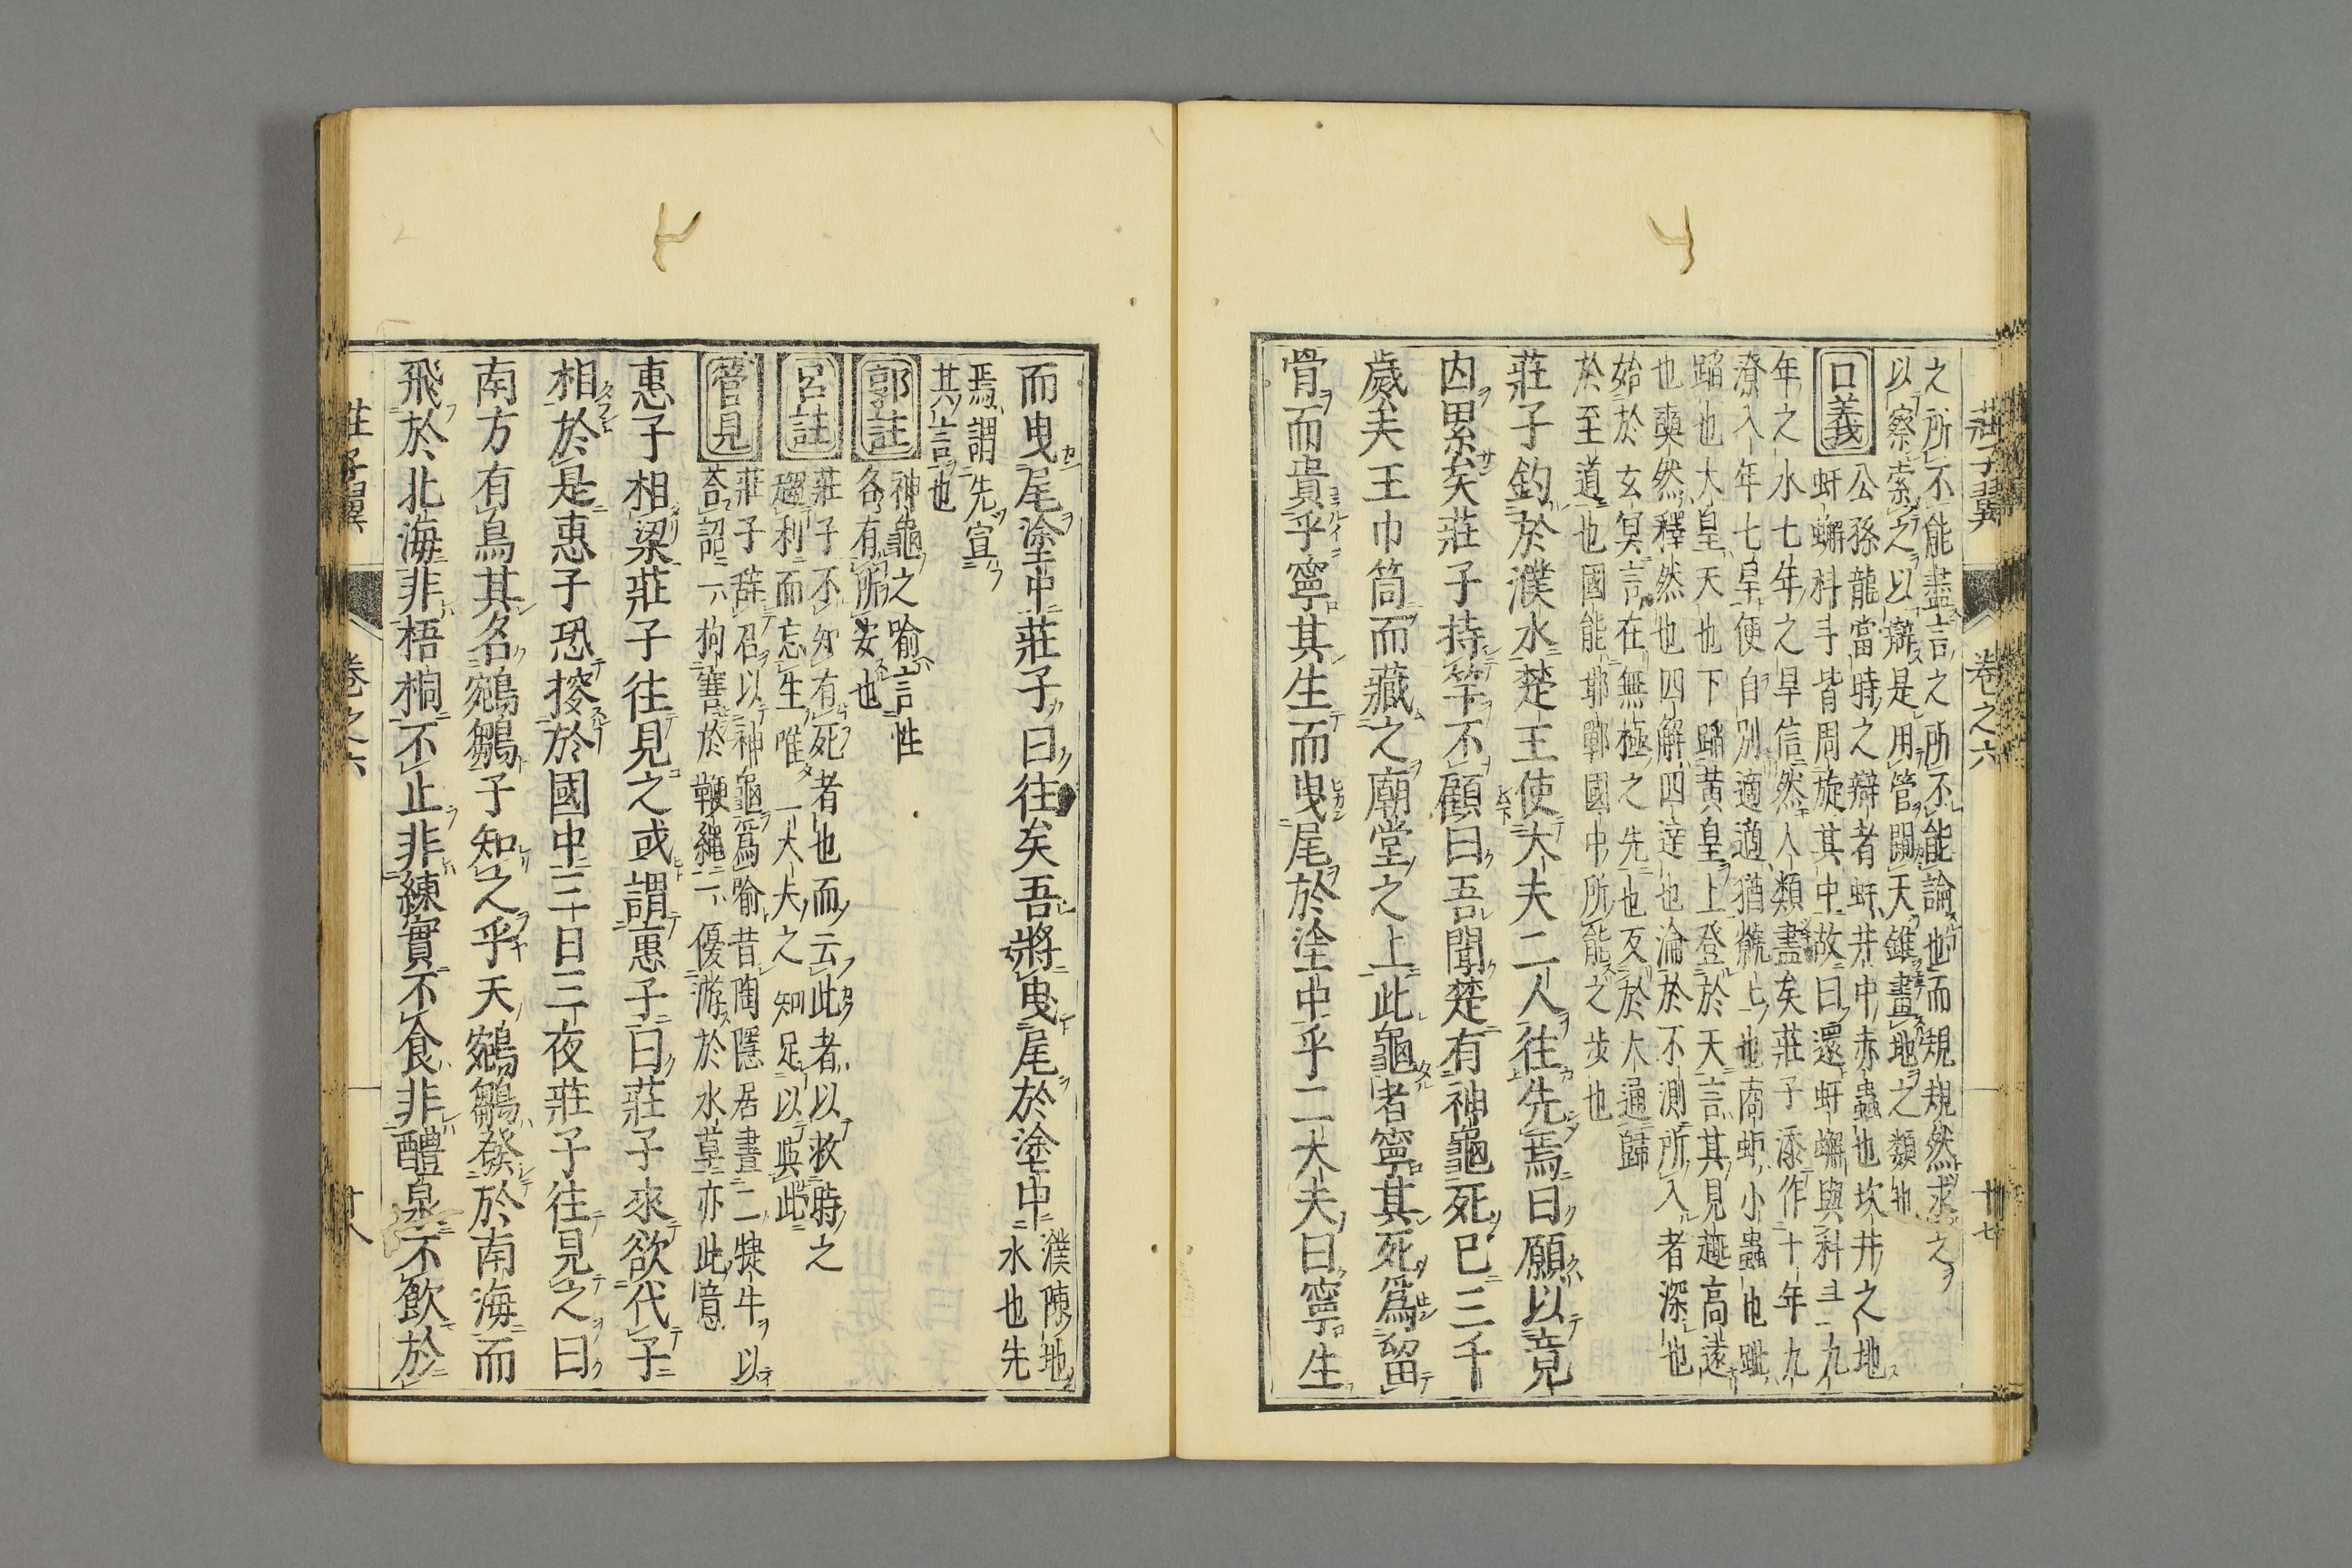 莊子翼 卷之六 廿七
之所不能盡言之所不能論也而規規然求之
以察索之以辯是用管闚天錐畫地之類也
口義
公孫龍當時之辯者蚈井中赤蟲也坎井之地
蚈蠏科斗皆周旋其中故曰還蚈蠏與科斗九
年之水七年之旱信然人類盡矣莊子添作十年九
潦八年七旱便自別適適猶
也商蚷小蟲也跐
蹈也大皇天也下蹈黃皇上登於天言其見趣高遠
也奭然釋然也四解四達也淪於不測所入者深也
始於玄冥言在無極之先也反於大通歸
於至道也國能邯鄲國中所能之步也
莊子釣於濮水楚王使大夫二人往先焉曰願以竟
內累矣莊子持竿不顧曰吾聞楚有神龜死已三千
歲矣王巾笥而藏之廟堂之上此龜者寧其死爲留
骨而貴乎寧其生而曳尾於塗中乎二大夫曰寧生
而曳尾塗中莊子曰往矣吾將曳尾於塗中
濮陳地
水也先
焉謂先宣
其言也
郭註
神龜之喻言性
各有所安也
呂註
莊子不知有死者也而云此者以救時之
趨利而忘生唯一大夫之知足以與此
管見
莊子辭召以神龜爲喻昔陶隱居畫二犍牛以
荅詔一狗
於鞭繩一優游於水草亦此意
惠子相梁莊子往見之或謂惠子曰莊子來欲代子
相於是惠子恐搜於國中三日三夜莊子往見之曰
南方有鳥其名鵷鶵子知之乎夫鵷鶵發於南海而
飛於北海非梧桐不止非練實不食非醴泉不飲於
莊子翼 卷之六 廿八